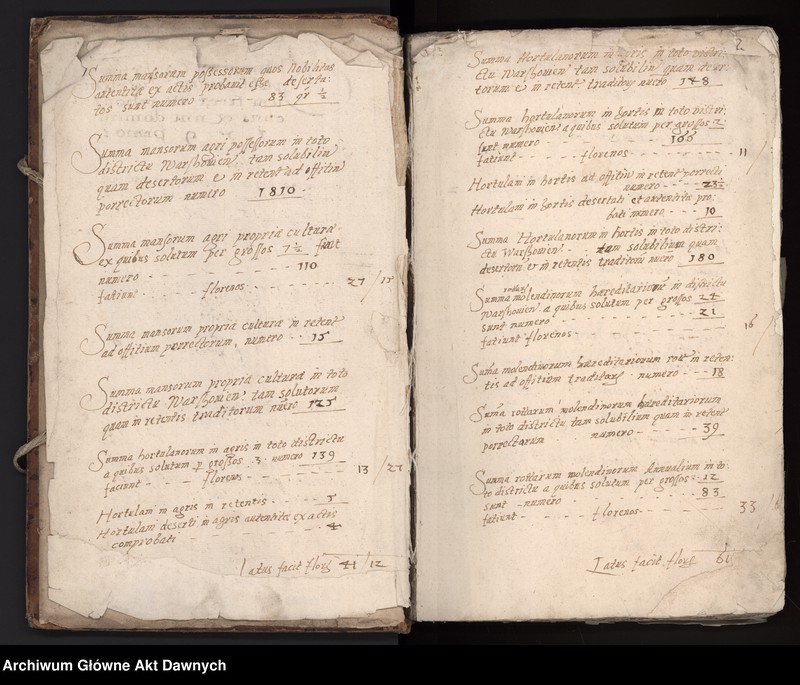 Summa mansorum possessorum quos Nobilitas
autentice ex actis probant esse deserta-
tos sunt numero - - 83 qr ½
Summa mansorum agri possessorum in toto
districtu Warshouien tam solubiliũ
quam desertorum et in retent ad offitiũ
porrectorum numero 1810.
Summa mansorum agri propria cultura
ex quibus solutum per grossos 7 ½ sunt
numero - - - - - - 110
fatiunt - - - florenos - - - - - 27 / 15
Summa mansorum propria cultura in retent
ad offitium porrectorum, numero - - 15
Summa mansorum propria cultura in toto
districtu Warshouien tam solutorum
quam in retentis traditorum nũero 125
Summa hortulanorum in agris in toto districtu
a quibus solutum p grossos . 3 . numero 139
faciunt - - - florenos - - - - 13 / 27
Hortulani in agris in retentis - - - - 5
Hortulani deserti in agris autentice ex actis
comprobati - - - - - - - 4
Latus facit flors 41 / 12
2
Summa Hortulanorum in agris in toto distri-
ctu Warshouien tam solubiliũ quam deser-
torum et in retent traditorũ nũero 148
Summa hortulanorum in hortis in toto distri-
ctu Warshouien a quibus solutum per grossos 2
sunt numero - - - - - - 166
fatiunt - - - - florenos - - - - - 11 /
Hortulani in hortis ad offitiũ in retent porrecti
numero - - - -
Hortulani in hortis desertati et autentice pro-
bati numero - - - - 10
Summa Hortulanorum in hortis in toto distri-
ctu Warshouien - - tam solubilium quam
desertorũ et in retentis traditorũ nũero 180
Summa rotarũ molendinorum hæreditariorũ in districtu
Warshouien a quibus solutum per grossos 24
sunt numero - - - - - - - 21
fatiunt florenos - - - - - - - 16 /
Sum̃a molendinorum hæreditariorum rotæ in reten-
tis ad offitium traditorũ - numero - - - 18
Sum̃a rottarum molendinorum hæreditariorum
in toto districtu tam solubilium quam in retent
porrectarum numero - - - - - 39
Summa rottarum molendinorum Annualium in to-
to districtu a quibus solutum per grossos - 12
sunt - numero - - - - - - - 83
fatiunt - - - - florenos - - - - - - 33 /
Latus facit flors 61
Archiwum Główne Akt Dawnych